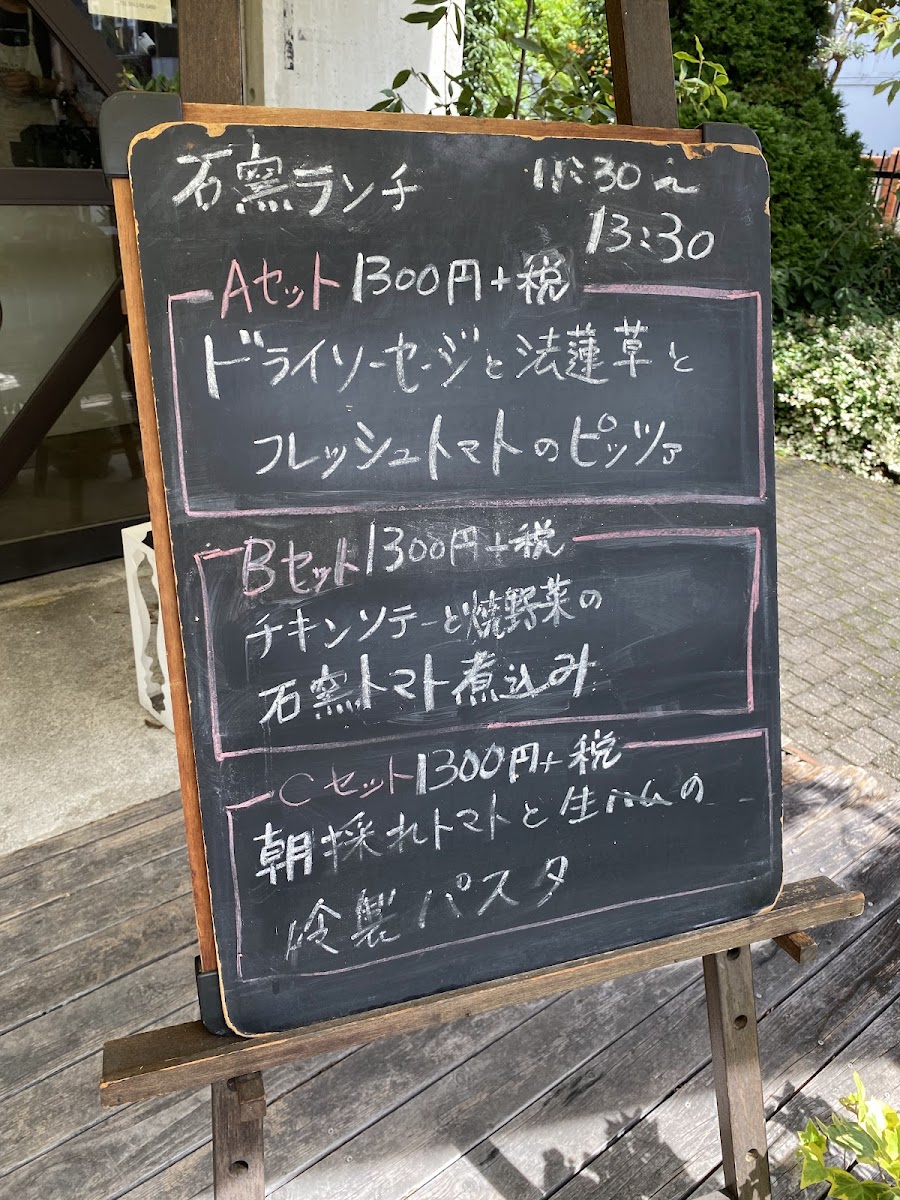 石窯ランチ 11:30〜
13:30
Aセット 1300円+税
ドライソーセージと法蓮草と
フレッシュトマトのピッツァ
Bセット 1300円+税
チキンソテーと焼野菜の
石窯トマト煮込み
Cセット 1300円+税
朝採れトマトと生ハムの
冷製パスタ